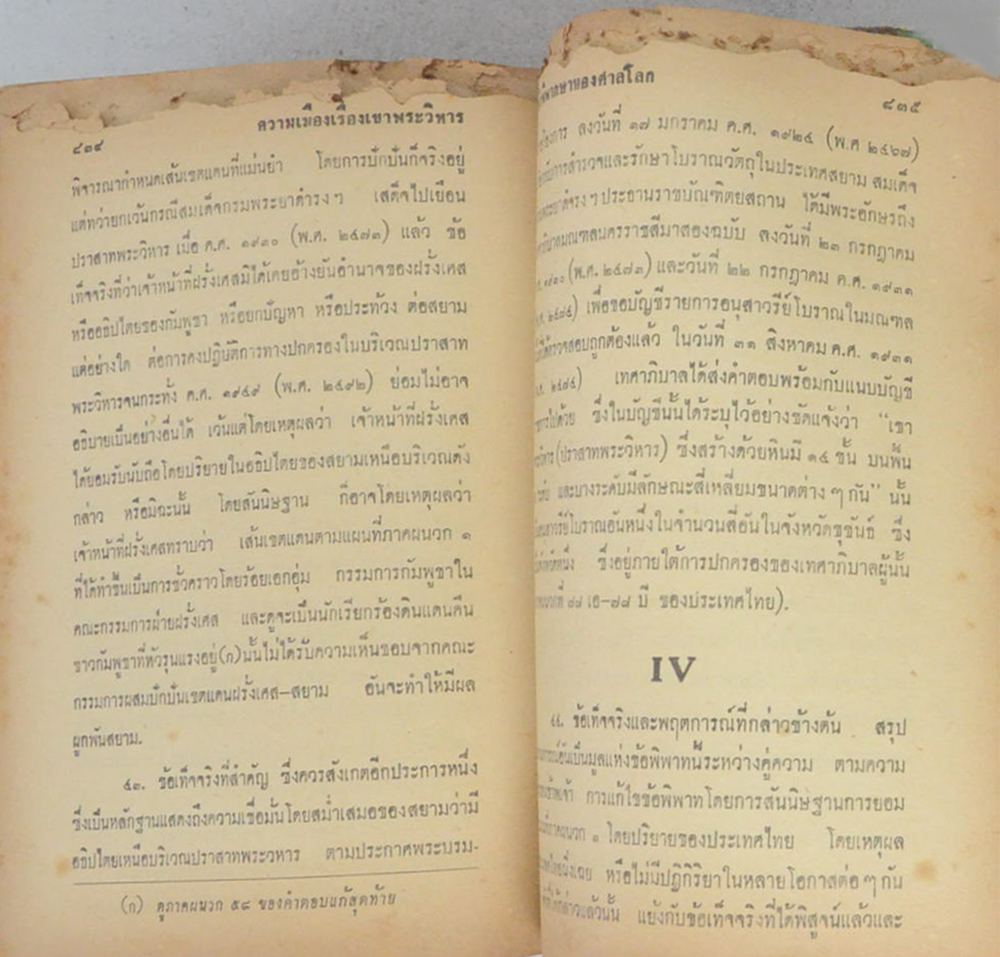 ความเมืองเรื่องเขาพระวิหาร
๔๓๔
พิจารณากำหนดเส้นเขตแดนที่แม่นยำ โดยการปักปันก็จริงอยู่
แต่ทว่ายกเว้นกรณีสมเด็จกรมพระยาดำรงฯ เสด็จไปเยือน
ปราสาทพระวิหาร เมื่อ ค.ศ. ๑๙๓๐ (พ.ศ. ๒๔๗๓) แล้ว ข้อ
เท็จจริงที่ว่าเจ้าหน้าที่ฝรั่งเศสมิได้เคยอ้างยันอำนาจของฝรั่งเศส
หรืออธิปไตยของกัมพูชา หรือยกปัญหา หรือประท้วง ต่อสยาม
แต่อย่างใด ต่อการคงปฏิบัติการทางปกครองในบริเวณปราสาท
พระวิหารจนกระทั่ง ค.ศ. ๑๙๔๙ (พ.ศ. ๒๔๙๒) ย่อมไม่อาจ
อธิบายเป็นอย่างอื่นได้ เว้นแต่โดยเหตุผลว่า เจ้าหน้าที่ฝรั่งเศส
ได้ยอมรับนับถือโดยปริยายในอธิปไตยของสยามเหนือบริเวณดัง
กล่าว หรือมิฉะนั้น โดยสันนิษฐาน ก็อาจโดยเหตุผลว่า
เจ้าหน้าที่ฝรั่งเศสทราบว่า เส้นเขตแดนตามแผนที่ภาคผนวก ๑
ที่ได้ทำขึ้นเป็นการชั่วคราวโดยร้อยเอกอุ่ม กรรมการกัมพูชาใน
คณะกรรมการฝ่ายฝรั่งเศส และดูจะเป็นนักเรียกร้องดินแดนคืน
ชาวกัมพูชาที่หัวรุนแรงอยู่(ก)นั้นไม่ได้รับความเห็นชอบจากคณะ
กรรมการผสมปักปันเขตแดนฝรั่งเศส–สยาม อันจะทำให้มีผล
ผูกพันสยาม.
๔๓. ข้อเท็จจริงที่สำคัญ ซึ่งควรสังเกตอีกประการหนึ่ง
ซึ่งเป็นหลักฐานแสดงถึงความเชื่อมั่นโดยสม่ำเสมอของสยามว่ามี
อธิปไตยเหนือบริเวณปราสาทพระวิหาร ตามประกาศพระบรม-
(ก) ดูภาคผนวก ๕๘ ของคำตอบแก้สุดท้าย
พิพากษาของศาลโลก
๔๓๕
ลงวันที่ ๑๗ มกราคม ค.ศ. ๑๙๒๔ (พ.ศ ๒๔๖๗)
การสำรวจและรักษาโบราณวัตถุในประเทศสยาม สมเด็จ
ประธานราชบัณฑิตยสถาน ได้มีพระอักษรถึง
มณฑลนครราชสีมาสองฉบับ ลงวันที่ ๒๓ กรกฎาคม
๑๙๓๐ (พ.ศ. ๒๔๗๓) และวันที่ ๒๒ กรกฎาคม ค.ศ. ๑๙๓๑
๒๔๗๔) เพื่อขอบัญชีรายการอนุสาวรีย์โบราณในมณฑล
ตรวจสอบถูกต้องแล้ว ในวันที่ ๓๑ สิงหาคม ค.ศ. ๑๙๓๑
๒๔๗๔) เทศาภิบาลได้ส่งคำตอบพร้อมกับแนบบัญชี
ไปด้วย ซึ่งในบัญชีนั้นได้ระบุไว้อย่างชัดแจ้งว่า “เขา
(ปราสาทพระวิหาร) ซึ่งสร้างด้วยหินมี ๑๔ ชั้น บนพื้น
และบางระดับมีลักษณะสี่เหลี่ยมขนาดต่าง ๆ กัน” นั้น
โบราณอันหนึ่งในจำนวนสี่อันในจังหวัดขุขันธ์ ซึ่ง
ซึ่งอยู่ภายใต้การปกครองของเทศาภิบาลผู้นั้น
๗๗ เอ–๗๗ บี ของประเทศไทย).
IV
๔๔. ข้อเท็จจริงและพฤติการณ์ที่กล่าวข้างต้น สรุป
อันเป็นมูลแห่งข้อพิพาทนี้ระหว่างคู่ความ ตามความ
การแก้ไขข้อพิพาทโดยการสันนิษฐานการยอม
๑ โดยปริยายของประเทศไทย โดยเหตุผล
หรือไม่มีปฏิกิริยาในหลายโอกาสต่อ ๆ กัน
กล่าวแล้วนั้น แย้งกับข้อเท็จจริงที่ได้พิสูจน์แล้วและ